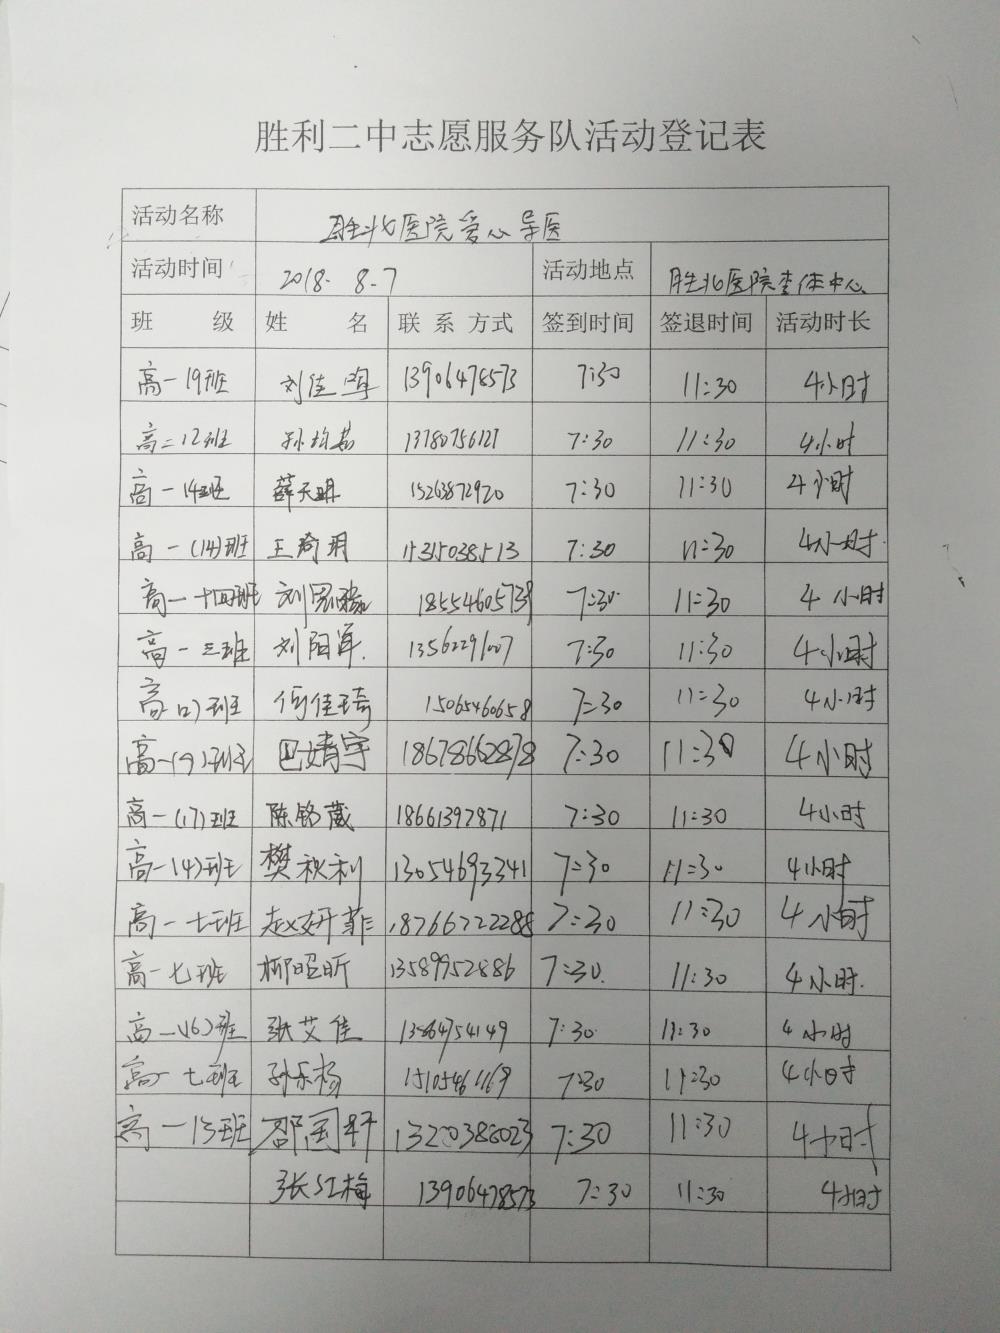 胜利二中志愿服务队活动登记表
活动名称 胜北医院爱心导医
活动时间 2018.8.7 活动地点 胜北医院查体中心
班 级 姓 名 联系方式 签到时间 签退时间 活动时长
高一19班 刘佳 13906478573 7:30 11:30 4小时
高二12班 孙 13780756127 7:30 11:30 4小时
高一14班 薛天 15263872920 7:30 11:30 4小时
高一(14)班 王琦玥 15315038513 7:30 11:30 4小时
高一十四班 刘 18554605739 7:30 11:30 4小时
高一三班 刘阳军 13562291007 7:30 11:30 4小时
高 班 何佳琦 15065460658 7:30 11:30 4小时
高一(9)班 巴婧宇 18678662878 7:30 11:30 4小时
高一(17)班 陈铭葳 18661397871 7:30 11:30 4小时
高一(4)班 樊秋利 13054693341 7:30 11:30 4小时
高一七班 赵妍菲 18766722288 7:30 11:30 4小时
高一七班 柳昭昕 13589952886 7:30 11:30 4小时
高一(16)班 张艾佳 13864754149 7:30 11:30 4小时
高一七班 孙乐杨 15105461169 7:30 11:30 4小时
高一15班 邵国轩 13220386023 7:30 11:30 4小时
张红梅 13906478573 7:30 11:30 4小时